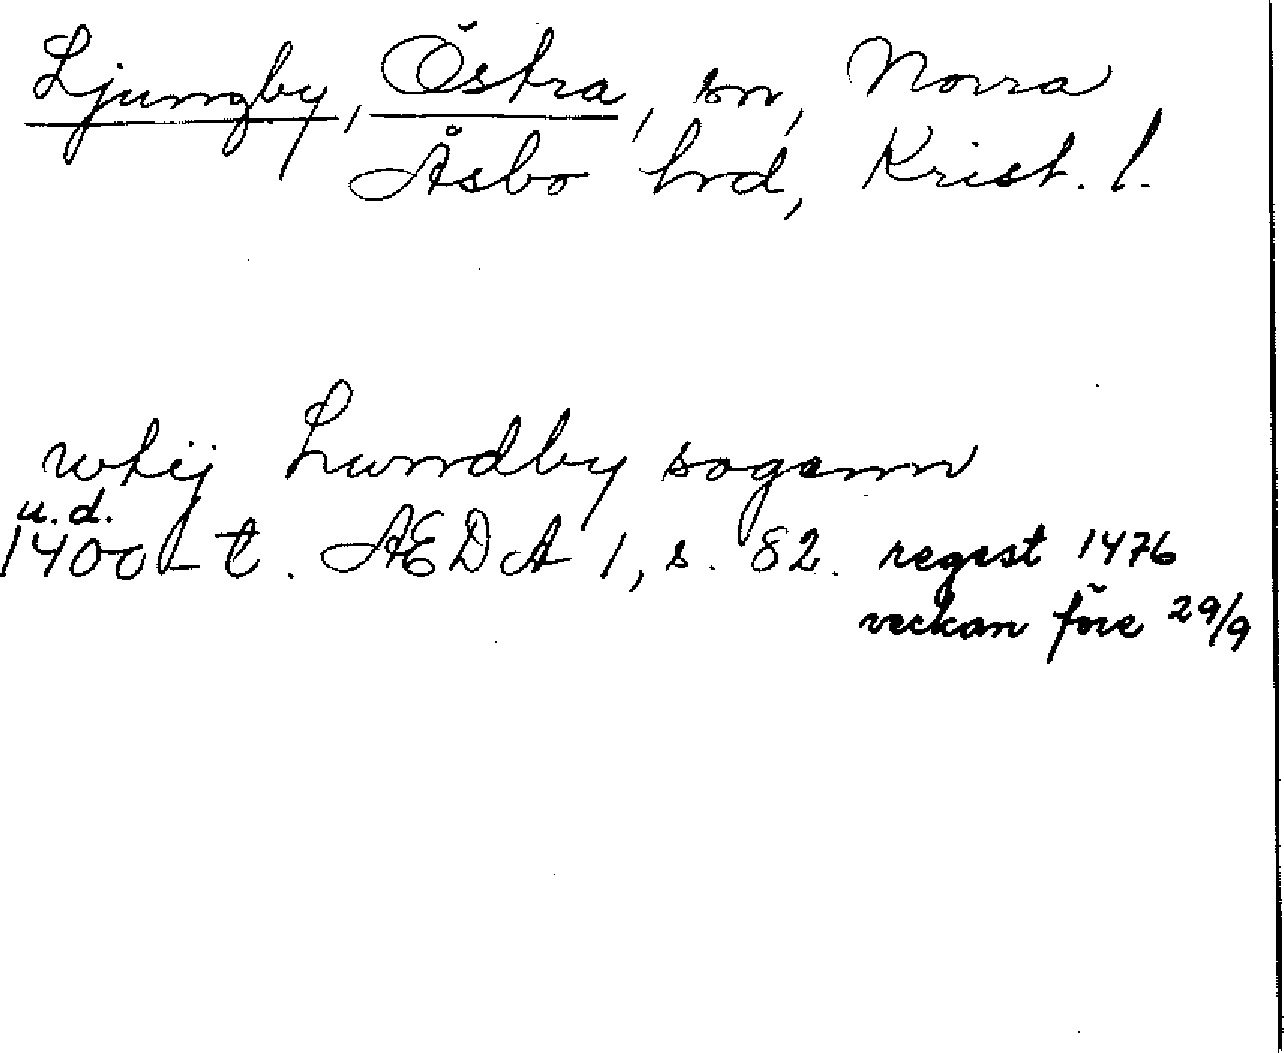 Ljungby, Östra, sn, Norra
Åsbo hrd, Krist. l.
whij Lundby sogenn
u.d.
1400-t. AEDA 1, s. 82. regest 1476
veckan före 29/9